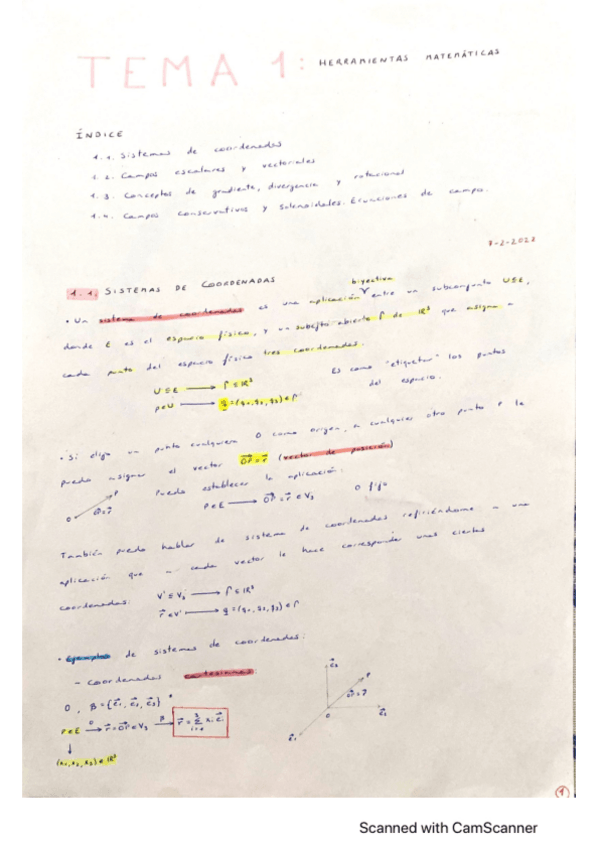 TEMA 1: HERRAMIENTAS MATEMÁTICAS
ÍNDICE
1.1. Sistemas de coordenadas
1.2. Campos escalares y vectoriales
1.3. Conceptos de gradiente, divergencia y rotacional
1.4. Campos conservativos y solenoidales. Ecuaciones de campo.
-2-2023
1.1. SISTEMAS DE COORDENADAS
biyectiva
• Un sistema de coordenadas es una aplicación entre un subconjunto U⊆E,
donde E es el espacio físico, y un subcjto abierto Γ de ℝ³ que asigna a
cada punto del espacio físico tres coordenadas.
U⊆E → Γ⊆ℝ³
p∈U → q=(q₁,q₂,q₃)∈Γ
Es como "etiquetar" los puntos
del espacio.
• Si elijo un punto cualquiera O como origen, a cualquier otro punto P le
puedo asignar el vector OP⃗=r⃗ (vector de posición)
Puedo establecer la aplicación:
P∈E → OP⃗=r⃗∈V₃ O fijo
O P OP⃗=r⃗
También puedo hablar de sistema de coordenadas refiriéndome a una
aplicación que a cada vector le hace corresponder unas ciertas
coordenadas:
V'⊆V₃ → Γ⊆ℝ³
r⃗∈V' → q=(q₁,q₂,q₃)∈Γ
• Ejemplos de sistemas de coordenadas:
- Coordenadas cartesianas:
O, B={e⃗₁,e⃗₂,e⃗₃}
P∈E →(O) r⃗=OP⃗∈V₃ →(B) r⃗=∑³ᵢ₌₁ xᵢe⃗ᵢ
(x₁,x₂,x₃)∈ℝ³
e⃗₃ P OP⃗=r⃗ O e⃗₂ e⃗₁
1
Scanned with CamScanner